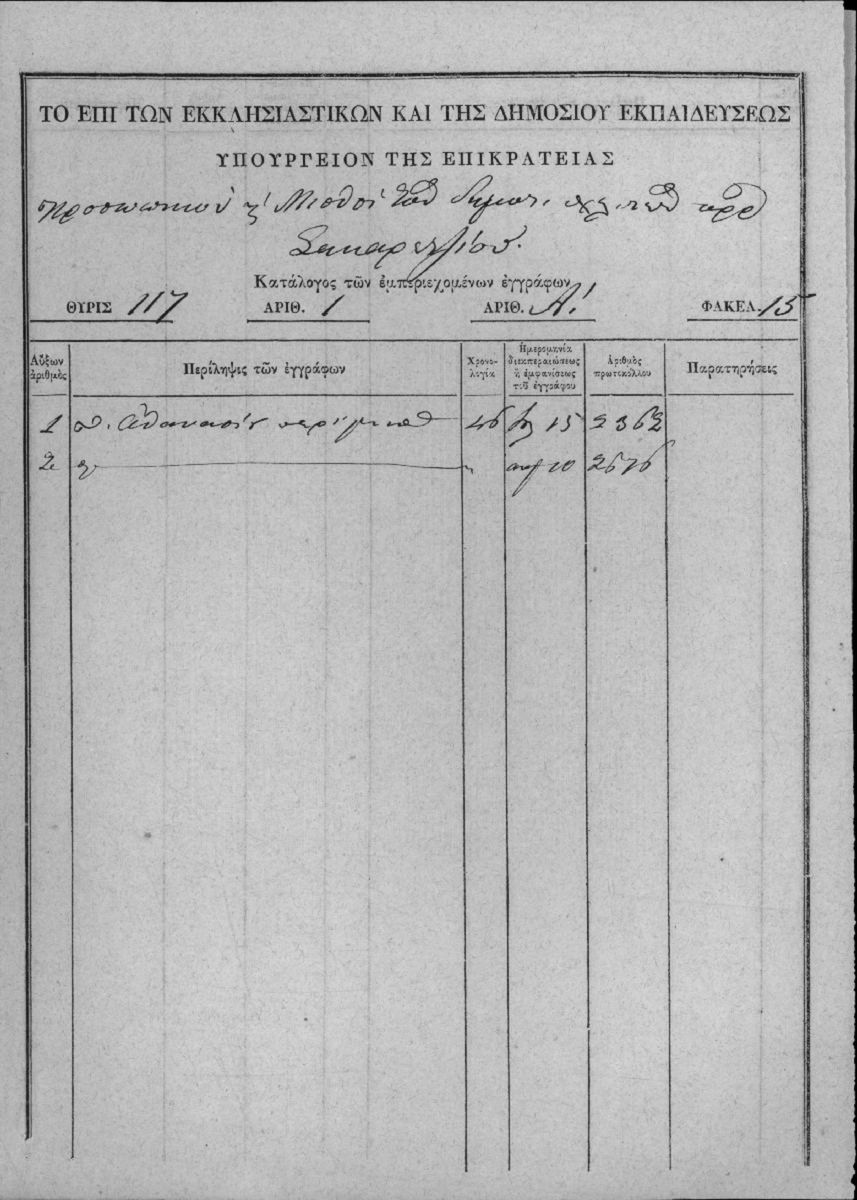 ΤΟ ΕΠΙ ΤΩΝ ΕΚΚΛΗΣΙΑΣΤΙΚΩΝ ΚΑΙ ΤΗΣ ΔΗΜΟΣΙΟΥ ΕΚΠΑΙΔΕΥΣΕΩΣ
ΥΠΟΥΡΓΕΙΟΝ ΤΗΣ ΕΠΙΚΡΑΤΕΙΑΣ
Μισθοί τοῦ δημοτ.
Κατάλογος τῶν ἐμπεριεχομένων ἐγγράφων
ΘΥΡΙΣ 117 ΑΡΙΘ. 1 ΑΡΙΘ. Α! ΦΑΚΕΛ. 15
Αὔξων ἀριθμὸς Περίληψις τῶν ἐγγράφων Χρονολογία Ἡμερομηνία διεκπεραιώσεως ἢ ἐμφανίσεως τοῦ ἐγγράφου Ἀριθμὸς πρωτοκόλλου Παρατηρήσεις
1 Ἀθανασίου 46 15 2362
2 " 10 2676